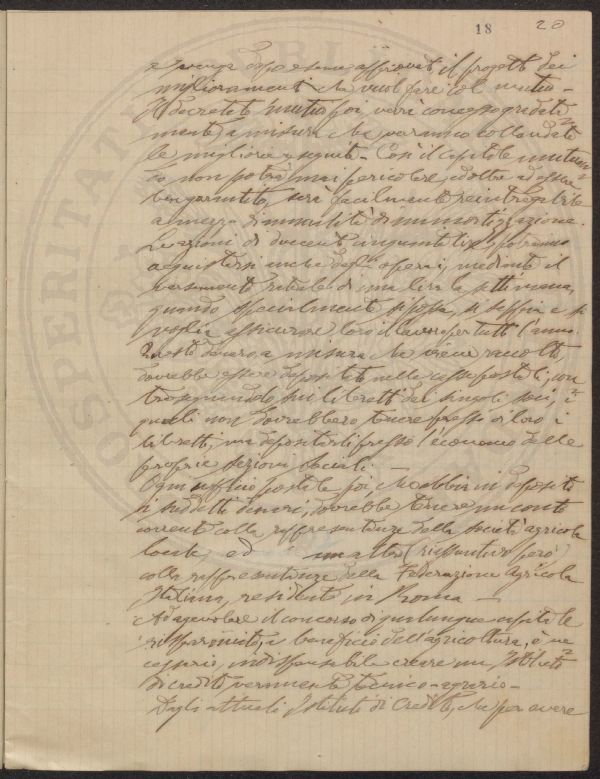 18 20
e venga dopo esame approvato il progetto dei
miglioramenti che vuol fare col mutuo.
Il decretato mutuo poi, verrà concesso gradata
mente a misura che verranno collaudate
le migliorie eseguite. Così il capitale mutua
to non potrà mai pericolare, ed oltre ad essere
ben garantito, sarà facilmente reintegrabile
a mezzo di annualità di ammortizzazione.
Le azioni di duecento cinquanta lire potranno
acquistarsi anche dagli operai, mediante il
versamento rateale di una lira la settimana,
quando specialmente si possa, si sappia e si
voglia assicurare loro il lavoro per tutto l'anno.
Questo denaro, a misura che viene raccolto,
dovrebbe essere depositato nelle casse postali, con
trosegnandolo sui libretti dei singoli soci, i
quali non dovrebbero tenere presso di loro i
libretti, ma depositarli presso l'economo delle
proprie sezioni sociali. —
Ogni ufficio postale poi, che abbia in deposito
i suddetti denari, dovrebbe tenere un conto
corrente colla rappresentanza della società agricola
locale, ed un altro (riassuntivo però)
colla rappresentanza della Federazione Agricola
Italiana, residente in Roma —
Ad agevolare il concorso di qualunque capitale
risparmiato, a beneficio dell'agricoltura, è ne
cessario, indispensabile creare un Istituto
di credito veramente tecnico-agrario —
Dagli attuali Istituti di Credito, che per avere
PROSPERITATI